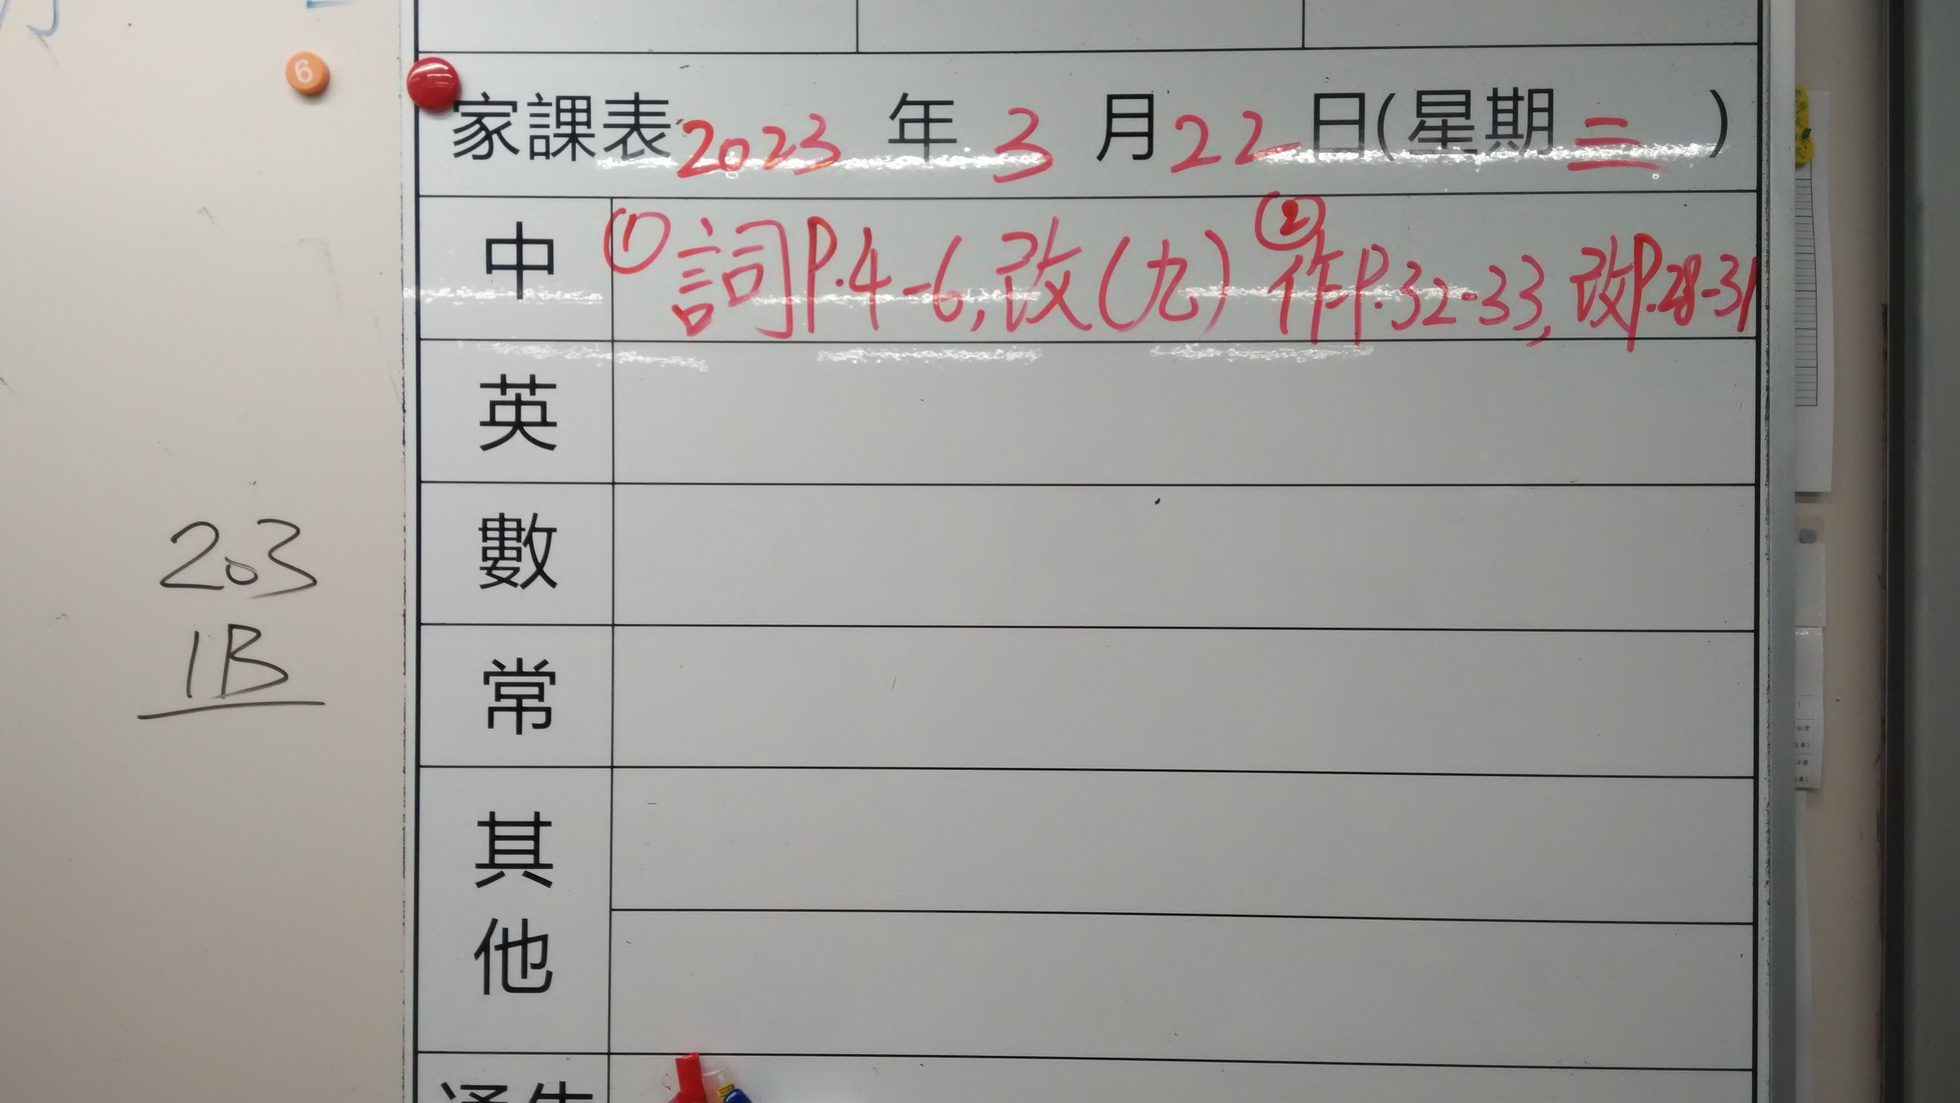 6
家課表2023年3月22日(星期三)
中 ①詞P.4-6,改(九) ②作P.32-33,改P.28-31
英
數
常
其他
通告
203
1B